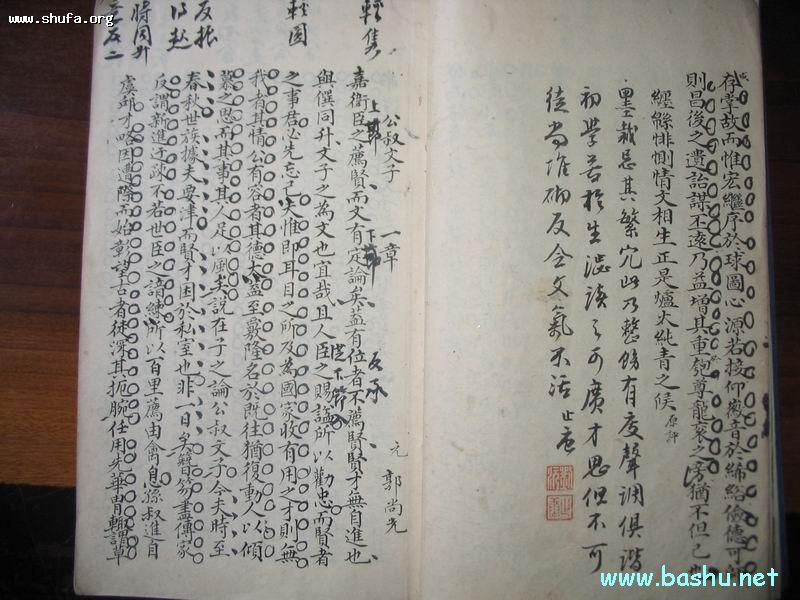 www.shufa.org
存堂故而惟宏繼序於球圖心源若接仰徽音於締綌儉德可
則昌後之遺詒謀丕遠乃益增其重匏尊龍袞之旁猶不但已
纏緜悱惻情文相生正是爐火純青之候 原評
墨裁忌其繁冗此乃整飭有度聲調俱諧
初學若於生澀讀之可廣才思但不可
徒尚堆砌反令文氣不活
輕雋
輕圓
反振
時同升
公叔文子 一章
元 郭尚先
上節
下節
反承
從下節入
嘉衛臣之薦賢而文有定論矣蓋有位者不薦賢賢才無自進也
與僎同升文子之為文也宜哉且人臣之賜謚所以勸忠而賢者
之事君必先忘己夫惟即耳目之所及為國家收有用之才則無
我者其情公有容者其德大蓋至勳隆名於既往猶復動人以傾
慕之思而其事其人足以風矣說在子之論公叔文子今夫時至
春秋世族據夫要津而賢才困於私室也非一日矣簪笏盡傳家
反謂新進迂疎不若世臣之諳練所以百里薦由禽息孫叔進自
虞邱才略因遭際而始彰望古者徒深其扼腕任用先華胄輒謂草
www.bashu.net